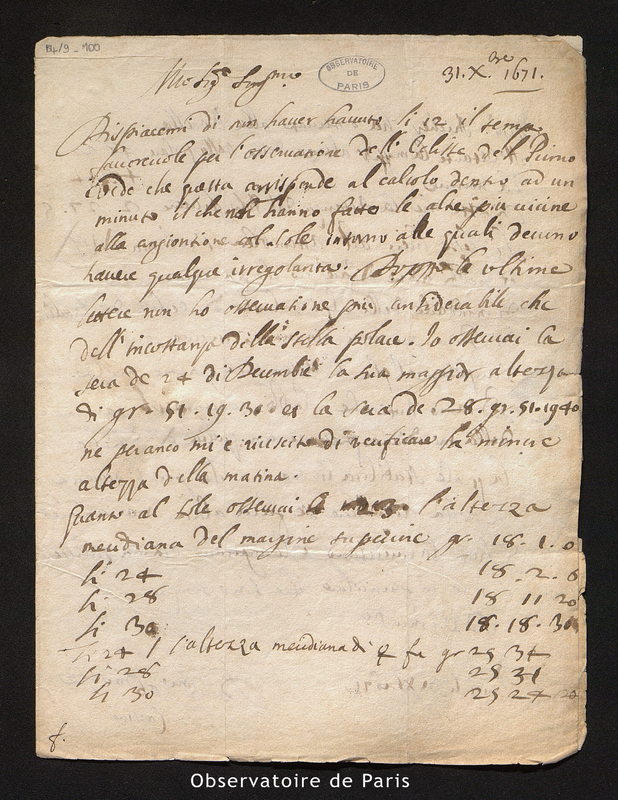 B4/9-100
OBSERVATOIRE
DE
PARIS
31. X.bre 1671.
Dispiacemi di non haver havuto li 12 il tempo
favorevole per l'osservatione dell' Eclisse del Primo
che questa arrisponde al calcolo dentro ad un
minuto il che non hanno fatto le altre più vicine
alla congiontione col sole intorno alle quali devono
havere qualque irregolarita. Doppo le ultime
lettere non ho osservatione più considerabile che
dell' incostanza della stella polare. Io osservai la
sera de 24 di Decembre la sua maggior altezza
di gr. 51. 19. 30 et la sera de 28. gr. 51. 19 40
ne peranco mi è riuscito di verificare la minore
altezza della matina.
Quanto al sole osservai li 23. l'altezza
meridiana del margine superiore gr. 18. 1. 0
li 24 18. 2. 0
li 28 18 11 20
li 30 18. 18. 30
li 24 l'altezza meridiana di ☿ fu gr 25 34
li 28 25 31
li 30 25 24 20
f.
Observatoire de Paris